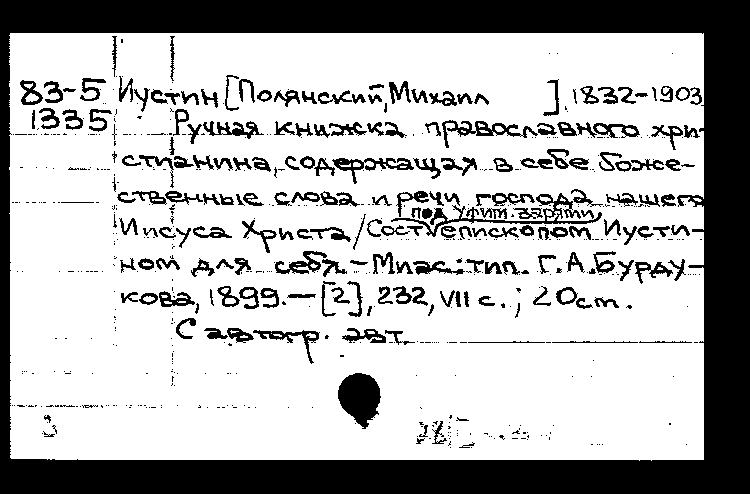 83-5 Иустин [Полянский, Михаил ], 1832-1903
1335 Ручная книжка православного хри-
стианина, содержащая в себе боже-
ственные слова и речи господа нашего
Иисуса Христа / Сост. епископом Иусти-
ном для себя. - Миас: тип. Г. А. Бурду-
кова, 1899. - [2], 232, VII с.; 20 см.
С автогр. авт.